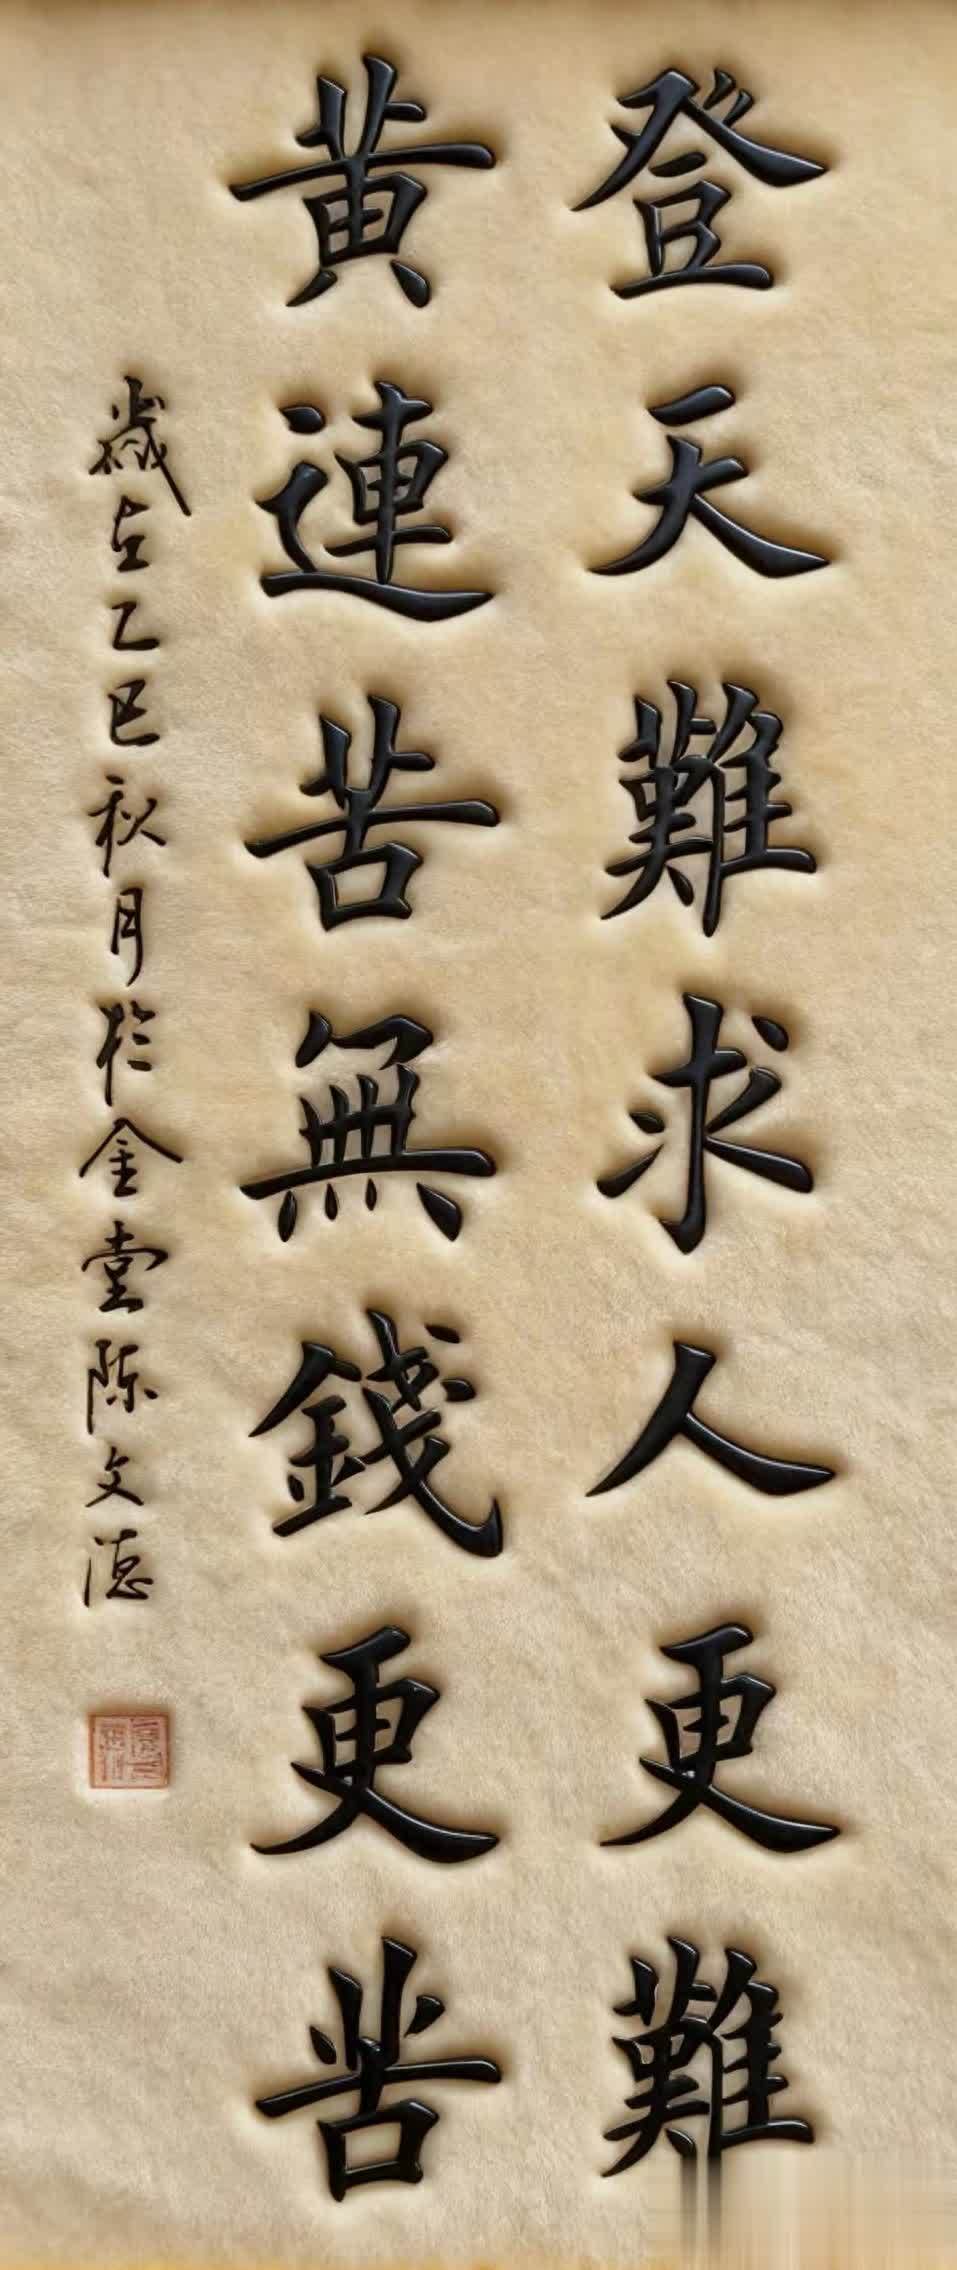 登天難求人更難
黃連苦無錢更苦
歲在乙巳秋月於金堂陈文德